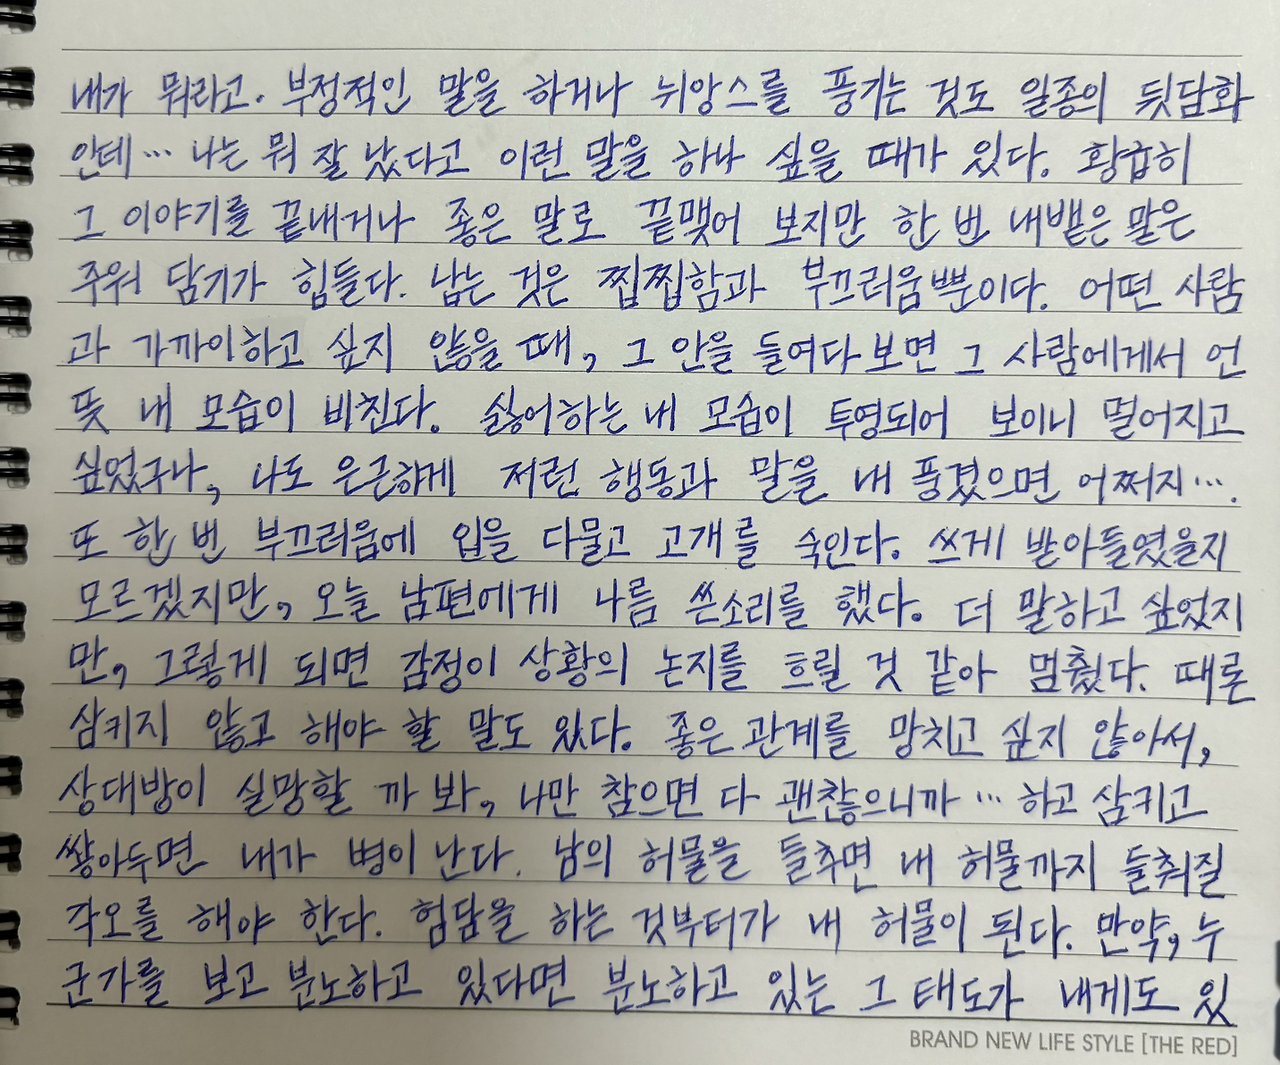 내가 뭐라고. 부정적인 말을 하거나 뉘앙스를 풍기는 것도 일종의 뒷담화
인데… 나는 뭐 잘 났다고 이런 말을 하나 싶을 때가 있다. 황급히
그 이야기를 끝내거나 좋은 말로 끝맺어 보지만 한 번 내뱉은 말은
주워 담기가 힘들다. 남는 것은 찝찝함과 부끄러움뿐이다. 어떤 사람
과 가까이하고 싶지 않을 때, 그 안을 들여다보면 그 사람에게서 언
뜻 내 모습이 비친다. 싫어하는 내 모습이 투영되어 보이니 멀어지고
싶었구나, 나도 은근하게 저런 행동과 말을 내 풍겼으면 어쩌지….
또 한 번 부끄러움에 입을 다물고 고개를 숙인다. 쓰게 받아들였을지
모르겠지만, 오늘 남편에게 나름 쓴소리를 했다. 더 말하고 싶었지
만, 그렇게 되면 감정이 상황의 논지를 흐릴 것 같아 멈췄다. 때론
삼키지 않고 해야 할 말도 있다. 좋은 관계를 망치고 싶지 않아서,
상대방이 실망할 까 봐, 나만 참으면 다 괜찮으니까… 하고 삼키고
쌓아두면 내가 병이 난다. 남의 허물을 들추면 내 허물까지 들춰질
각오를 해야 한다. 험담을 하는 것부터가 내 허물이 된다. 만약, 누
군가를 보고 분노하고 있다면 분노하고 있는 그 태도가 내게도 있
BRAND NEW LIFE STYLE [THE RED]